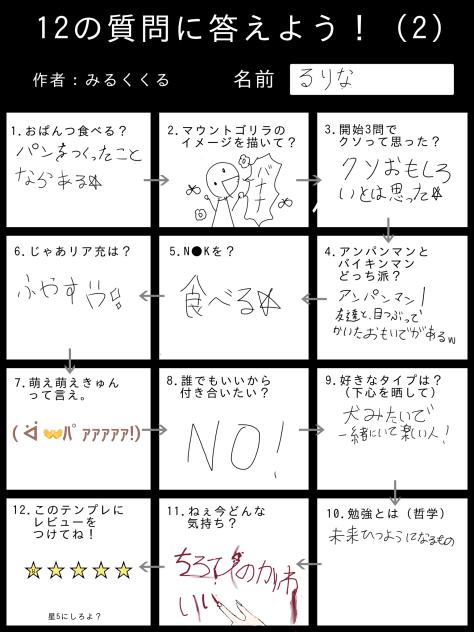 12の質問に答えよう！（2）
作者：みるくくる
名前
るりな
1.おぱんつ食べる？
パンをつくったこと
ならある
2.マウントゴリラの
イメージを描いて？
バナナ
3.開始3問で
クソって思った？
クソおもしろ
いとは思った
4.アンパンマンと
バイキンマン
どっち派？
アンパンマン！
友達と、目つぶって
かいたおもいでがあるw
5.N●Kを？
食べる
6.じゃあリア充は？
ふやす
7.萌え萌えきゅん
って言え。
パァァァァァ!)
8.誰でもいいから
付き合いたい？
NO!
9.好きなタイプは？
（下心を晒して）
犬みたいで
一緒にいて楽しい人！
10.勉強とは（哲学）
未来ひつようになるもの
11.ねぇ今どんな
気持ち？
いい
12.このテンプレに
レビューを
つけてね！
★★★★★
星5にしろよ？